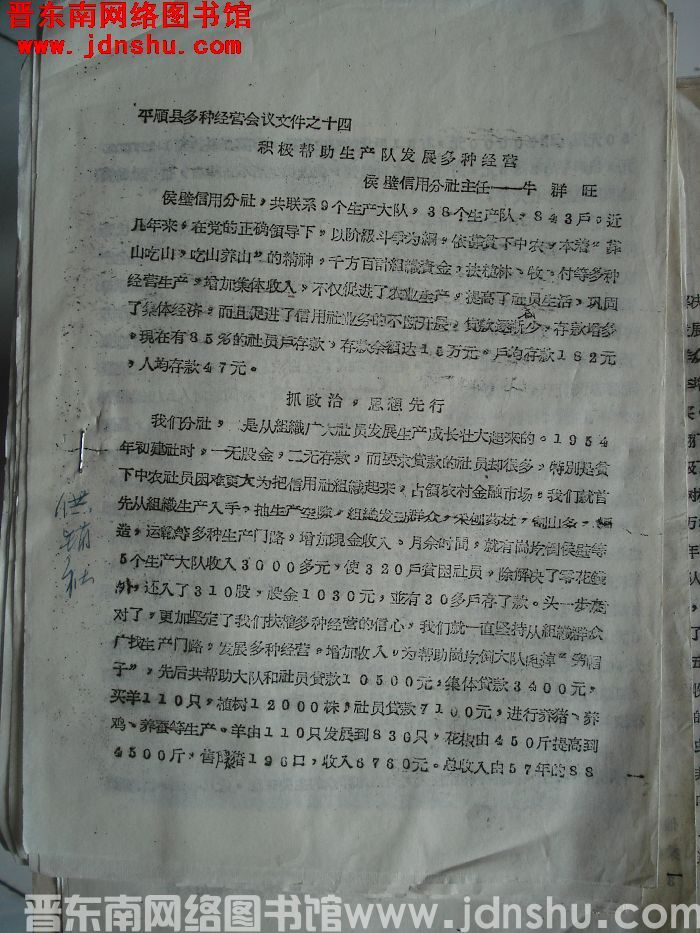 晋东南网络图书馆
www.jdnshu.com
平顺县多种经营会议文件之十四
积极帮助生产队发展多种经营
侯壁信用分社主任——牛群旺
侯壁信用分社，共联系9个生产大队，38个生产队，843戶。近
几年来，在党的正确领导下，以阶級斗爭为綱，依靠貧下中农，本着“靠
山吃山，吃山养山”的精神，千方百計組織資金，扶植林、牧、付等多种
经营生产，增加集体收入，不仅促进了农业生产，提高了社员生活，巩固
了集体经济，而且促进了信用社业务的不断开展，貸款逐渐少，存款增多
，现在有85%的社员戶存款，存款余額达15万元，戶均存款182元
，人均存款47元。
抓政治，思想先行
我们分社，是从組織广大社员发展生产成长壮大起来的。1954
年初建社时，一无股金，二无存款，而要求貸款的社员却很多，特別是貧
下中农社员困难更大为把信用社組織起来，占領农村金融市场，我们就首
先从組織生产入手，抽生产空隙，組織发动群众，采刨药材，
造，运輸等多种生产门路，增加现金收入。月余时間，就有崗圪倒侯壁等
5个生产大队收入3000多元，使320戶貧困社员，除解决了零花錢
外，还入了310股，股金1030元，並有30多戶存了款。头一步走
对了，更加坚定了我们扶植多种经营的信心，我们就一直坚持从組織群众
广找生产门路，发展多种经营。增加收入，为帮助崗圪倒大队甩掉“窮帽
子”，先后共帮助大队和社员貸款10500元，集体貸款3400元，
买羊110只，植树12000株，社员貸款7100元，进行养猪、养
鸡、养蚕等生产。羊由110只发展到830只，花椒由450斤提高到
4500斤，售肥猪196口，收入6760元。总收入由57年的88
供
销
社
晋东南网络图书馆 www.jdnshu.com